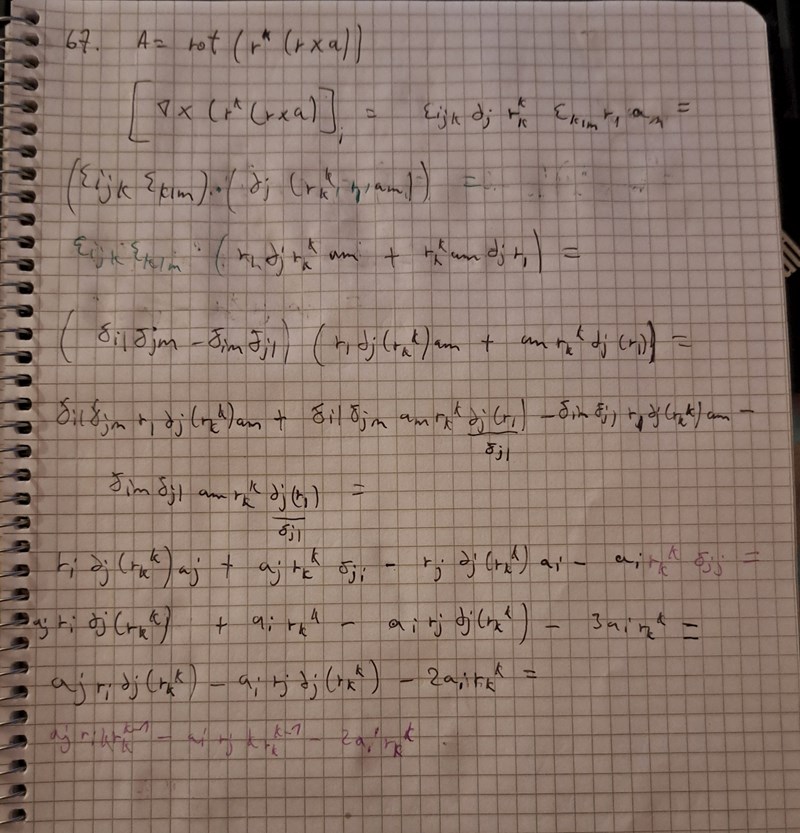 67. A = rot (r^k (r×a))
[∇ × (r^k (r×a)]_i = ε_ijk ∂_j r_k^k ε_klm r_l a_m =
(ε_ijk ε_klm) · (∂_j (r_k^k r_l a_m)) =
ε_ijk ε_klm · (r_l ∂_j r_k^k a_m + r_k^k a_m ∂_j r_l) =
(δ_il δ_jm - δ_im δ_jl) (r_l ∂_j (r_k^k) a_m + a_m r_k^k ∂_j (r_l)) =
δ_il δ_jm r_l ∂_j (r_k^k) a_m + δ_il δ_jm a_m r_k^k ∂_j (r_l) - δ_im δ_jl r_l ∂_j (r_k^k) a_m -
δ_jl
δ_im δ_jl a_m r_k^k ∂_j (r_l) =
δ_jl
r_i ∂_j (r_k^k) a_j + a_j r_k^k δ_ji - r_j ∂_j (r_k^k) a_i - a_i r_k^k δ_jj =
a_j r_i ∂_j (r_k^k) + a_i r_k^k - a_i r_j ∂_j (r_k^k) - 3 a_i r_k^k =
a_j r_i ∂_j (r_k^k) - a_i r_j ∂_j (r_k^k) - 2 a_i r_k^k =
a_j r_i k r_k^k-1 - a_i r_j k r_k^k-1 - 2 a_i r_k^k